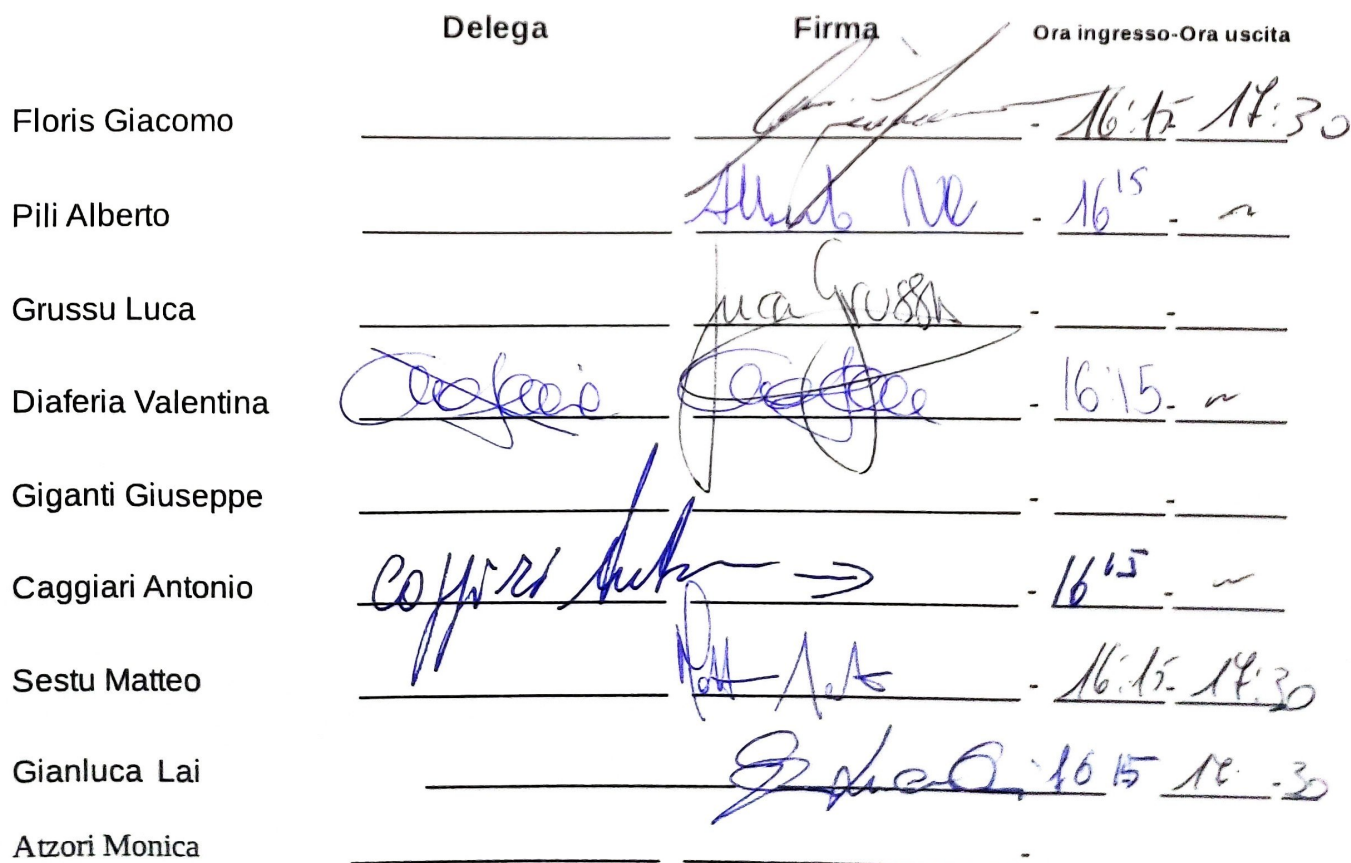 Delega Firma Ora ingresso-Ora uscita
Floris Giacomo - 16:15 - 17:30
Pili Alberto Alberto - 16 15 - ~
Grussu Luca Luca Grussu - -
Diaferia Valentina - 16:15 - ~
Giganti Giuseppe - -
Caggiari Antonio → - 16 15 - ~
Sestu Matteo - 16:15 - 17:30
Gianluca Lai 16 15 17 - 30
Atzori Monica -